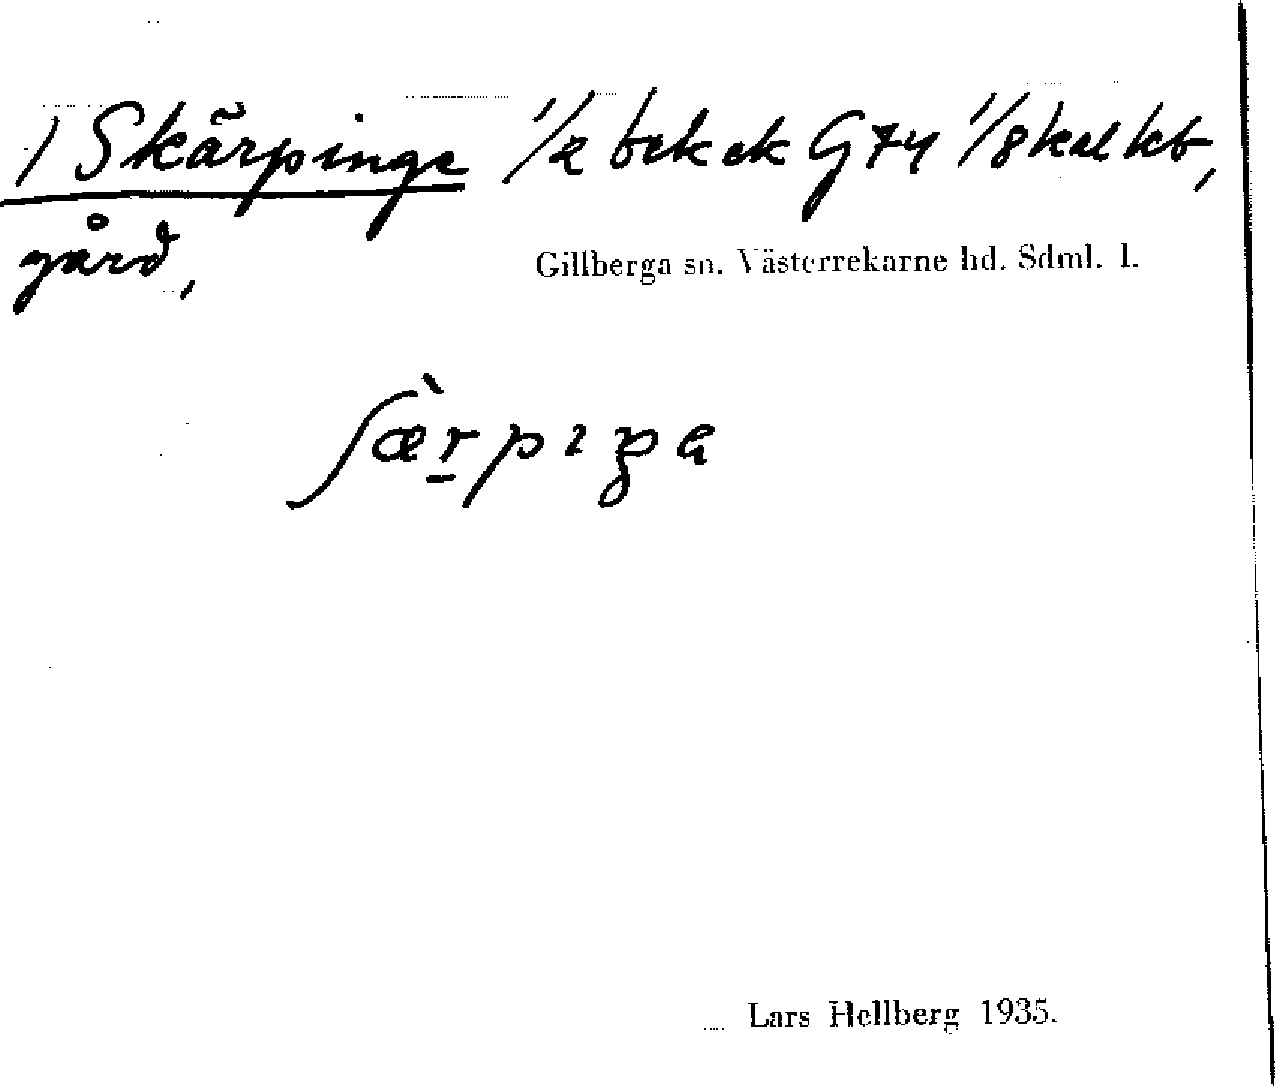 / Skärpinge 1/2 bekek G74 1/8 kalkb,
gård,
Gillberga sn. Västerrekarne hd. Sdml. l.
ʃæ̀r̠pıŋa
Lars Hellberg 1935.